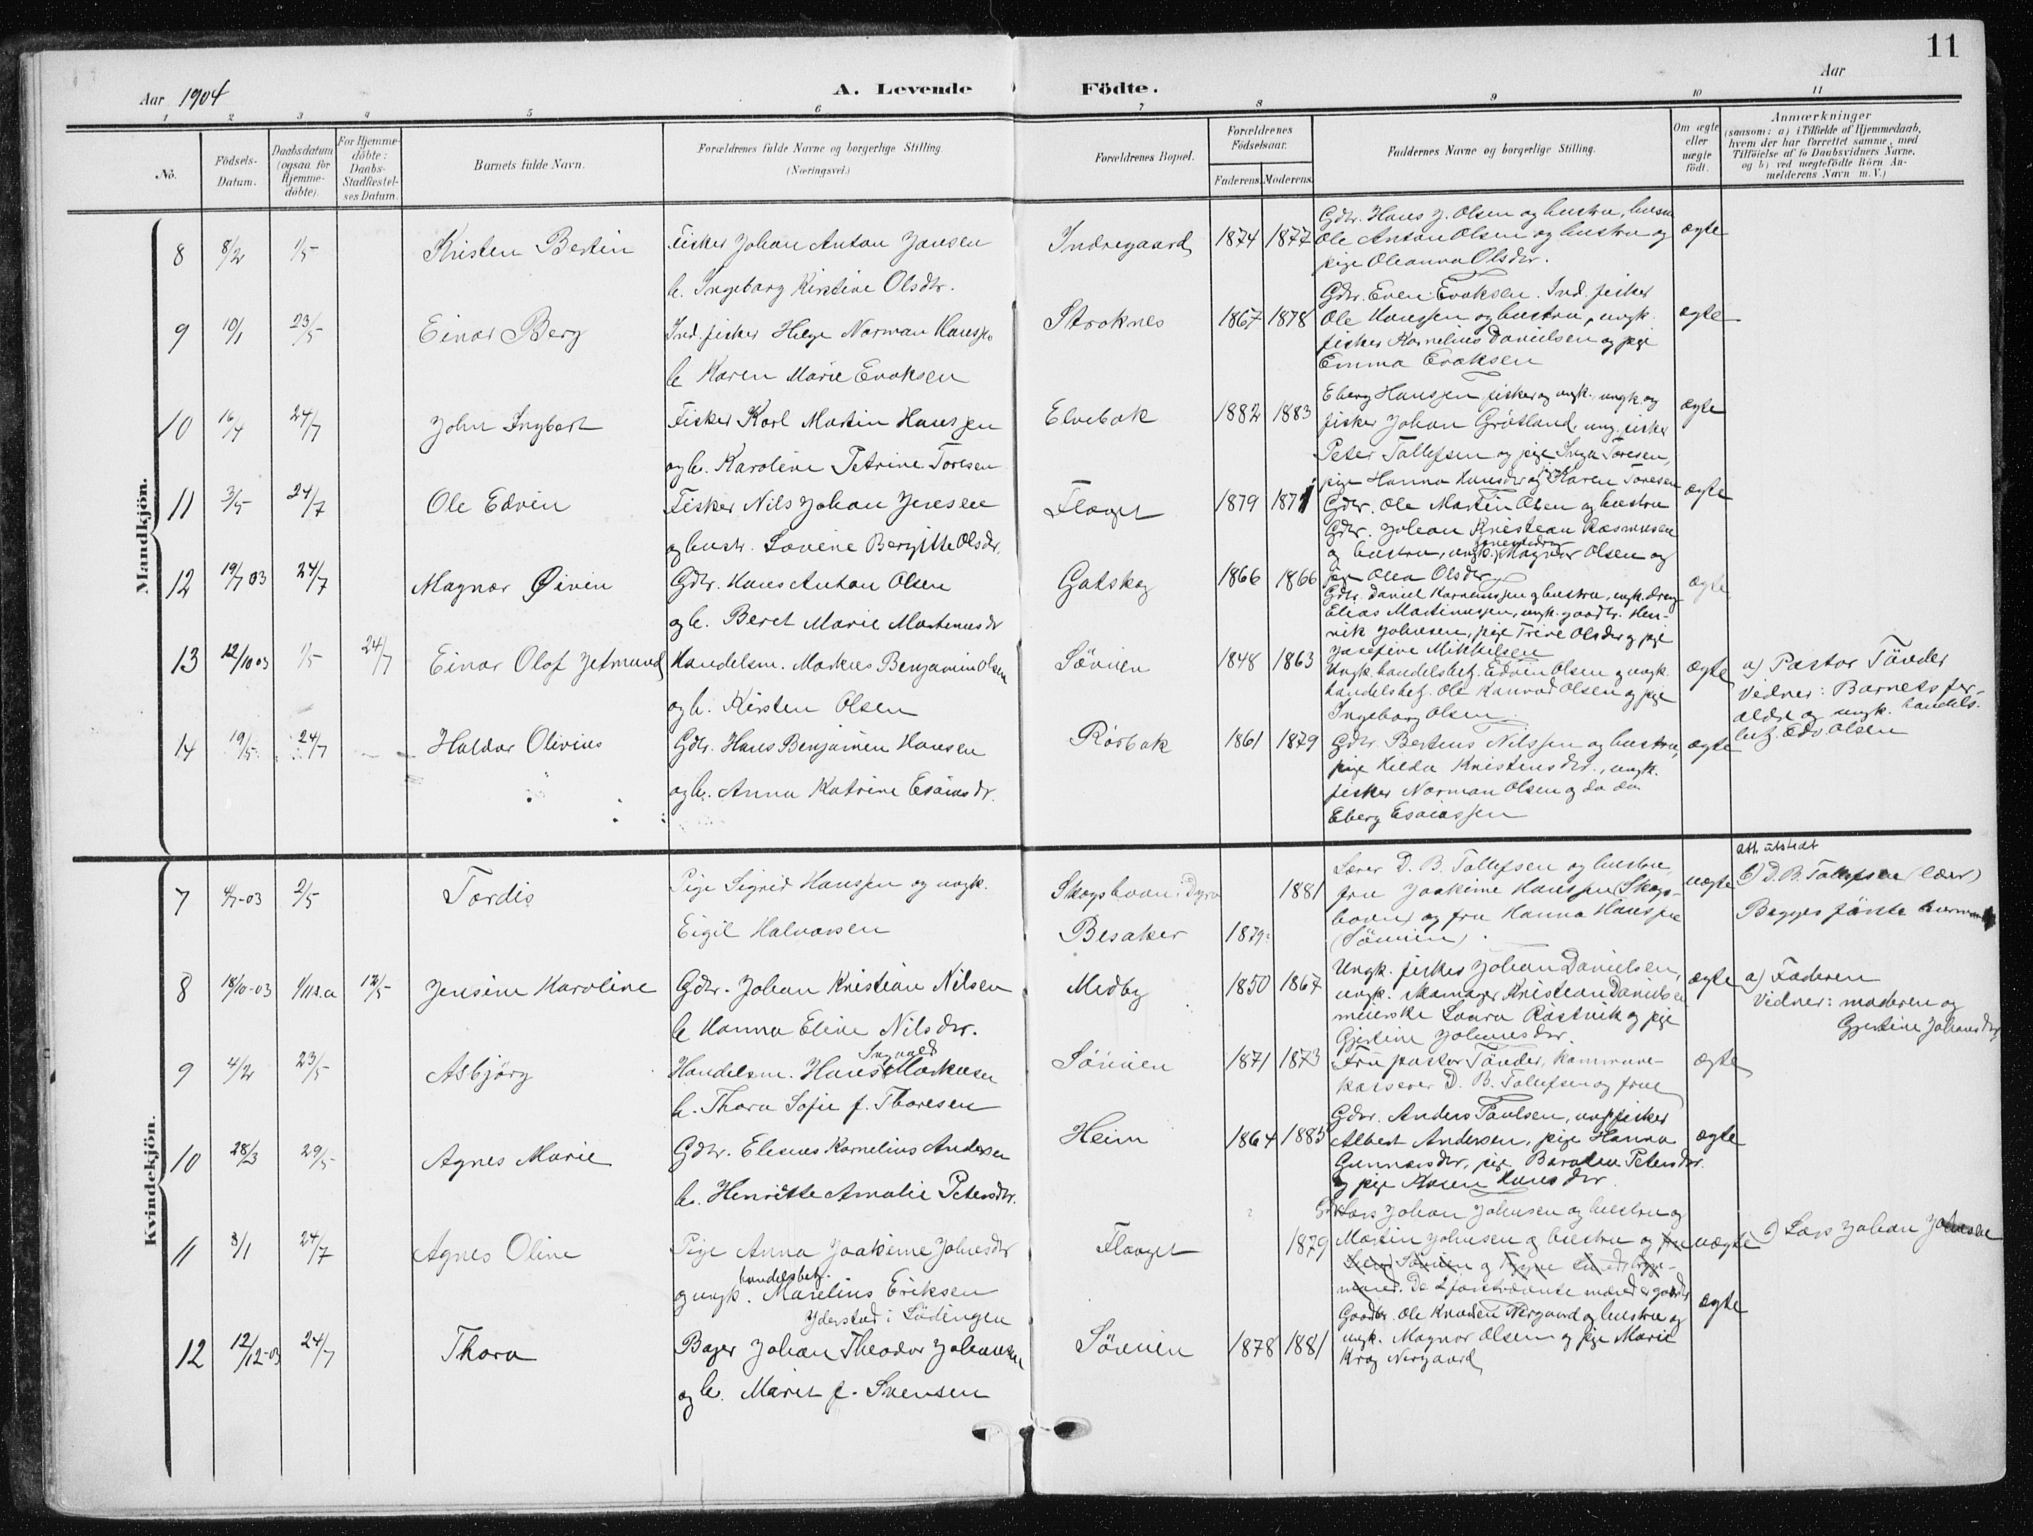 11
Aar 1904
A. Levende Födte.
Aar
1 2 3 4 5 6 7 8 9 10 11
No.
Födsels-Datum.
Daabsdatum (ogsaa for Hjemme-döbte).
For Hjemme-döbte: Daabs-Stadfæstel-ses Datum.
Barnets fulde Navn.
Forældrenes fulde Navne og borgerlige Stilling.
(Næringsvei.)
Forældrenes Bopæl.
Forældrenes Födselsaar.
Faderens. Moderens.
Faddernes Navne og borgerlige Stilling.
Om ægte eller uægte födt.
Anmærkninger
(saasom: a) i Tilfælde af Hjemmedaab,
hvem der har forrettet samme, med
Tilföielse af to Daabsvidners Navne,
og b) ved uægtefödte Börn An-
melderens Navn m. V.)
Mandkjön.
8 8/2 1/5 Kristen Bertin
Fisker Johan Anton Jansen
h. Ingeborg Kirstine Olsdtr.
Indregaard 1874 1877
Gdbr. Hans J. Olsen og hustru, husm
Ole Anton Olsen og hustru og
pige Oleanna Olsdtr.
ægte
9 10/1 23/5 Einar Berg
Ind. fisker Helge Norman Hanssen
h. Karen Marie Evaksen
Stroknes 1867 1878
Gdbr. Even Evaksen. Ind. fisker
Ole Hanssen og hustru, ungk.
fisker Kornelius Danielsen og pige
Emma Evaksen
ægte
10 16/4 24/7 John Ingbart
Fisker Karl Martin Hanssen
og h. Karoline Petrine Toresen
Elvebak 1882 1883
Eberg Hanssen fisker og ungk. ungk. og
fisker Johan Grøtland, ung. fisker
Peter Tollefsen og pige Inga Toresen,
pige Hanna Hansdtr og pige Karen Toresen
ægte
11 3/5 24/7 Ole Edvin
Fisker Nils Johan Jensen
og hustr. Lovine Bergitte Olsdtr.
Flaaget 1879 1871
Gdbr. Ole Martin Olsen og hustru
Gdbr. Johan Kristian Rasmussen
og hustru, ungk. Magnar Olsen og
pige Olea Olsdtr
ægte
12 19/7 03 24/7 Magnar Øivin
Gdbr. Hans Anton Olsen
og h. Beret Marie Martinusdtr
Gatskog 1866 1866
Gdbr. Daniel Kornelussen og hustru, ungk. dreng
Elias Martinussen, ungk. gaardbr. Hen-
rik Johnsen, pige Trine Olsdtr og pige
Josefine Mikkelsen
ægte
13 12/10 03 1/5 24/7 Einar Olaf Jetmund
Handelsm. Markus Benjamin Olsen
og h. Kirsten Olsen
Sövien 1848 1863
Ungk. handelsbetj. Edvin Olsen og ungk.
handelsbetj. Ole Konrad Olsen og pige
Ingeborg Olsen
ægte
a) Pastor Tönder
Vidner: Barnets for-
ældre og ungk. handels-
betj. Edv. Olsen
14 19/5 24/7 Haldor Olivius
Gdbr. Hans Benjamin Hansen
og h. Anna Katrine Esaiasdtr.
Rörbak 1861 1879
Gdbr. Bertius Nilssen og hustru,
pige Hilda Kristensdtr., ungk.
fisker Norman Olsen og do do
Eberg Esaiassen
ægte
Kvindekjön.
7 4/7-03 2/5 Tordis
Pige Sigrid Hanssen og ungk.
Eigil Halvorsen
Skogshavn i Dyrö
Besaker 1879 1881
Lærer D. B. Tollefsen og hustru,
fru Joakime Hanssen (Skogs-
havn) og fru Hanna Hanssen
(Sövien).
uægte
att. utstedt
b) D. B. Tollefsen (lærer)
Begges förste barn
8 18/10-03 1/11 s.a 12/5 Jensine Karoline
Gdbr. Johan Kristian Nilsen
h. Hanna Eline Nilsdtr.
Medby 1850 1867
Ungk. fisker Johan Danielsen,
ungk. skomager Kristian Danielsen
meierske Laura Rostvik og pige
Gjertine Johansdtr.
ægte
a) Faderen
Vidner: moderen og
Gjertine Johansdtr
9 4/2 23/5 Asbjörg
Handelsm. Hans Ingvald Markussen
h. Thora Sofie f. Thoresen
Sövien 1871 1873
Fru pastor Tönder, kommune-
kasserer D. B. Tollefsen og frue
ægte
10 28/3 29/5 Agnes Marie
Gdbr. Eliseus Kornelius Andersen
h. Henritte Amalie Petersdtr.
Heim 1864 1885
Gdbr. Anders Paulsen, ung fisker
Albert Andersen, pige Hanna
Gunnarsdtr, pige Berntine Petersdtr.
og pige Karen Hansdtr.
ægte
11 3/1 24/7 Agnes Oline
Pige Anna Joakime Johnsdtr
og ungk. handelsbetj. Marelius Eriksen
Yderstad i Lödingen
Flaaget 1879
Gdbr Lars Johan Johnsen og hustru og
Martin Johnsen og hustru og fru
De 2 foretrædente mænd er gaardbr
uægte
b) Lars Johan Johnsen
12 12/12-03 24/7 Thora
Bager Johan Theodor Johansen
og h. Marit f. Svensen
Sövien 1878 1881
Gaardbr. Ole Knudsen Nergaard og hustru og
ungk. Magnar Olsen og pige Marie
Krog Nergaard
ægte